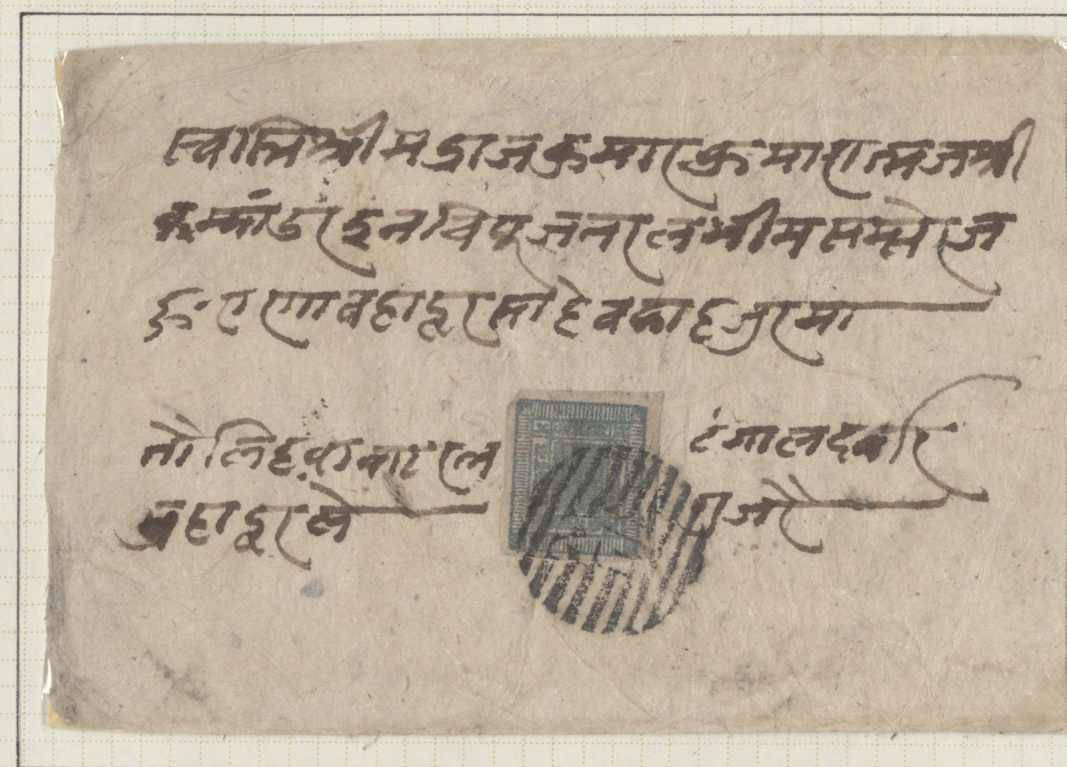 स्वस्ति श्रीमद्राजकुमारकुमारात्मज श्री
कम्यांडर इन चिफ् जनरल भीम सम्सेर ज
ङ्ग राणा बहादूर साहेवका हजुरमा
तौलिहवा वाट टंगाल दर्वारि
बहादूरले